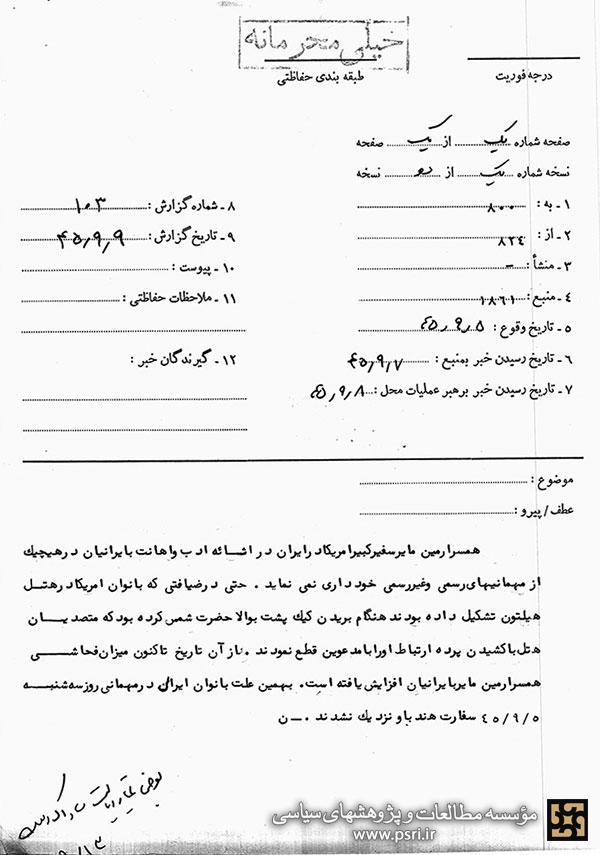 خیلی محرمانه
طبقه بندی حفاظتی
درجه فوریت
صفحه شماره یک از یک صفحه
نسخه شماره یک از دو نسخه
۱ـ به : ۸۰۰
۲ـ از : ۸۲٤
۳ـ منشأ : -
٤ـ منبع : ۱۸٦۱
۵ـ تاریخ وقوع : ٤۵٫۹٫۵
٦ـ تاریخ رسیدن خبر بمنبع : ٤۵٫۹٫۷
۷ـ تاریخ رسیدن خبر برهبر عملیات محل : ٤۵٫۹٫۸
۸ـ شماره گزارش : ۱۰۳
۹ـ تاریخ گزارش : ٤۵٫۹٫۹
۱۰ـ پیوست :
۱۱ـ ملاحظات حفاظتی :
۱۲ـ گیرندگان خبر :
موضوع :
عطف/ پیرو :
همسرارمین مایرسفیرکبیرامریکادرایران در اشائه ادب واهانت بایرانیان درهیچیک
از مهمانیهای رسمی وغیررسمی خودداری نمی نماید . حتی درضیافتی که بانوان امریکادرهتل
هیلتون تشکیل داده بودند هنگام بریدن کیک پشت بوالا حضرت شمس کرده بودکه متصدیان
هتل باکشیدن پرده ارتباط اورابامدعوین قطع نمودند . از آن تاریخ تاکنون میزان فحاشی
همسرارمین مایربایرانیان افزایش یافته است. بهمین علت بانوان ایران درمهمانی روزسه شنبه
٤۵/۹/۵ سفارت هند باو نزدیک نشدند .ـ ن
مؤسسه مطالعات و پژوهشهای سیاسی
www.psri.ir